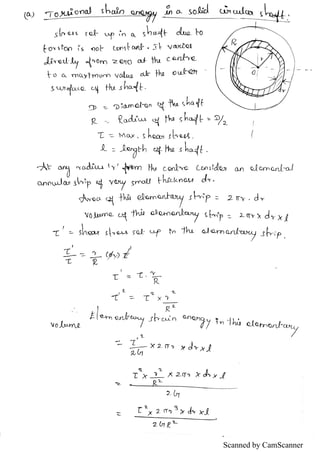 (a) Torsional strain energy in a solid circular shaft.
stress set up in a shaft due to
torsion is not constant. It varies
directly from zero at the centre
to a maximum value at the outer
surface of the shaft.
R
r
D = Diameter of the shaft
R = Radius of the shaft = D/2
τ = Max. shear stress.
l = length of the shaft.
At any radius 'r' from the centre consider an elemental
annular strip of very small thickness dr.
Area of this elementary strip = 2πr . dr
Volume of this elementary strip = 2πr x dr x l
τ' = shear stress set up in the elementary strip.
τ'/τ = r/R
τ' = τ . r/R
τ'² = τ² x r²/R²
Elementary strain energy in this elementary
volume
= τ'²/2G x 2πr x dr x l
= τ² x r²/R² x 2πr x dr x l / 2G
= τ² x 2πr³ x dr x l / 2GR²
Scanned by CamScanner